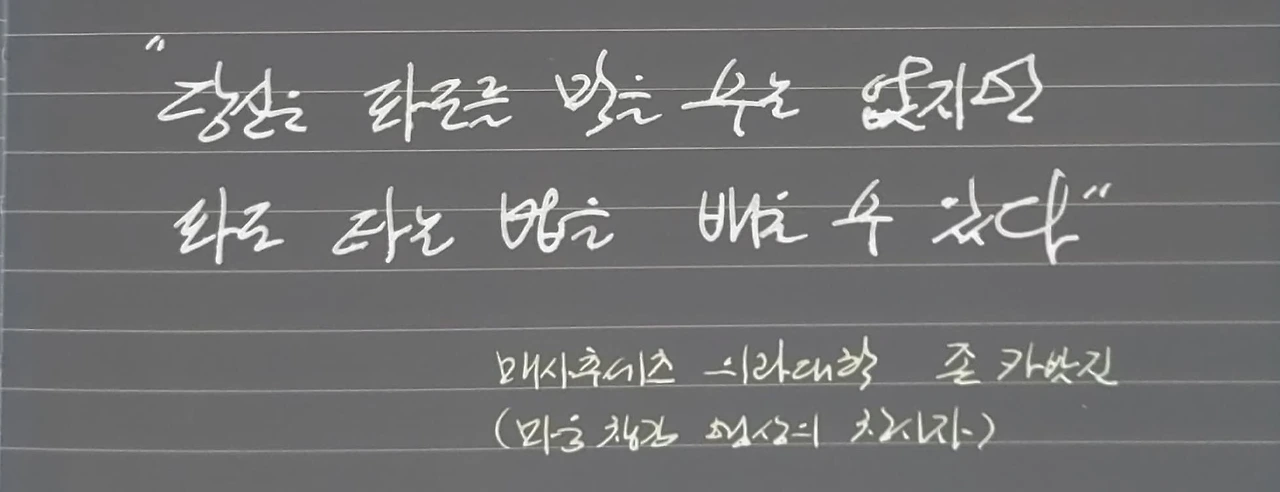 "당신은 파도를 막을 수는 없지만
파도 타는 법을 배울 수 있다"
매사추세츠 의과대학 존 카밧진
(마음챙김 명상의 창시자)